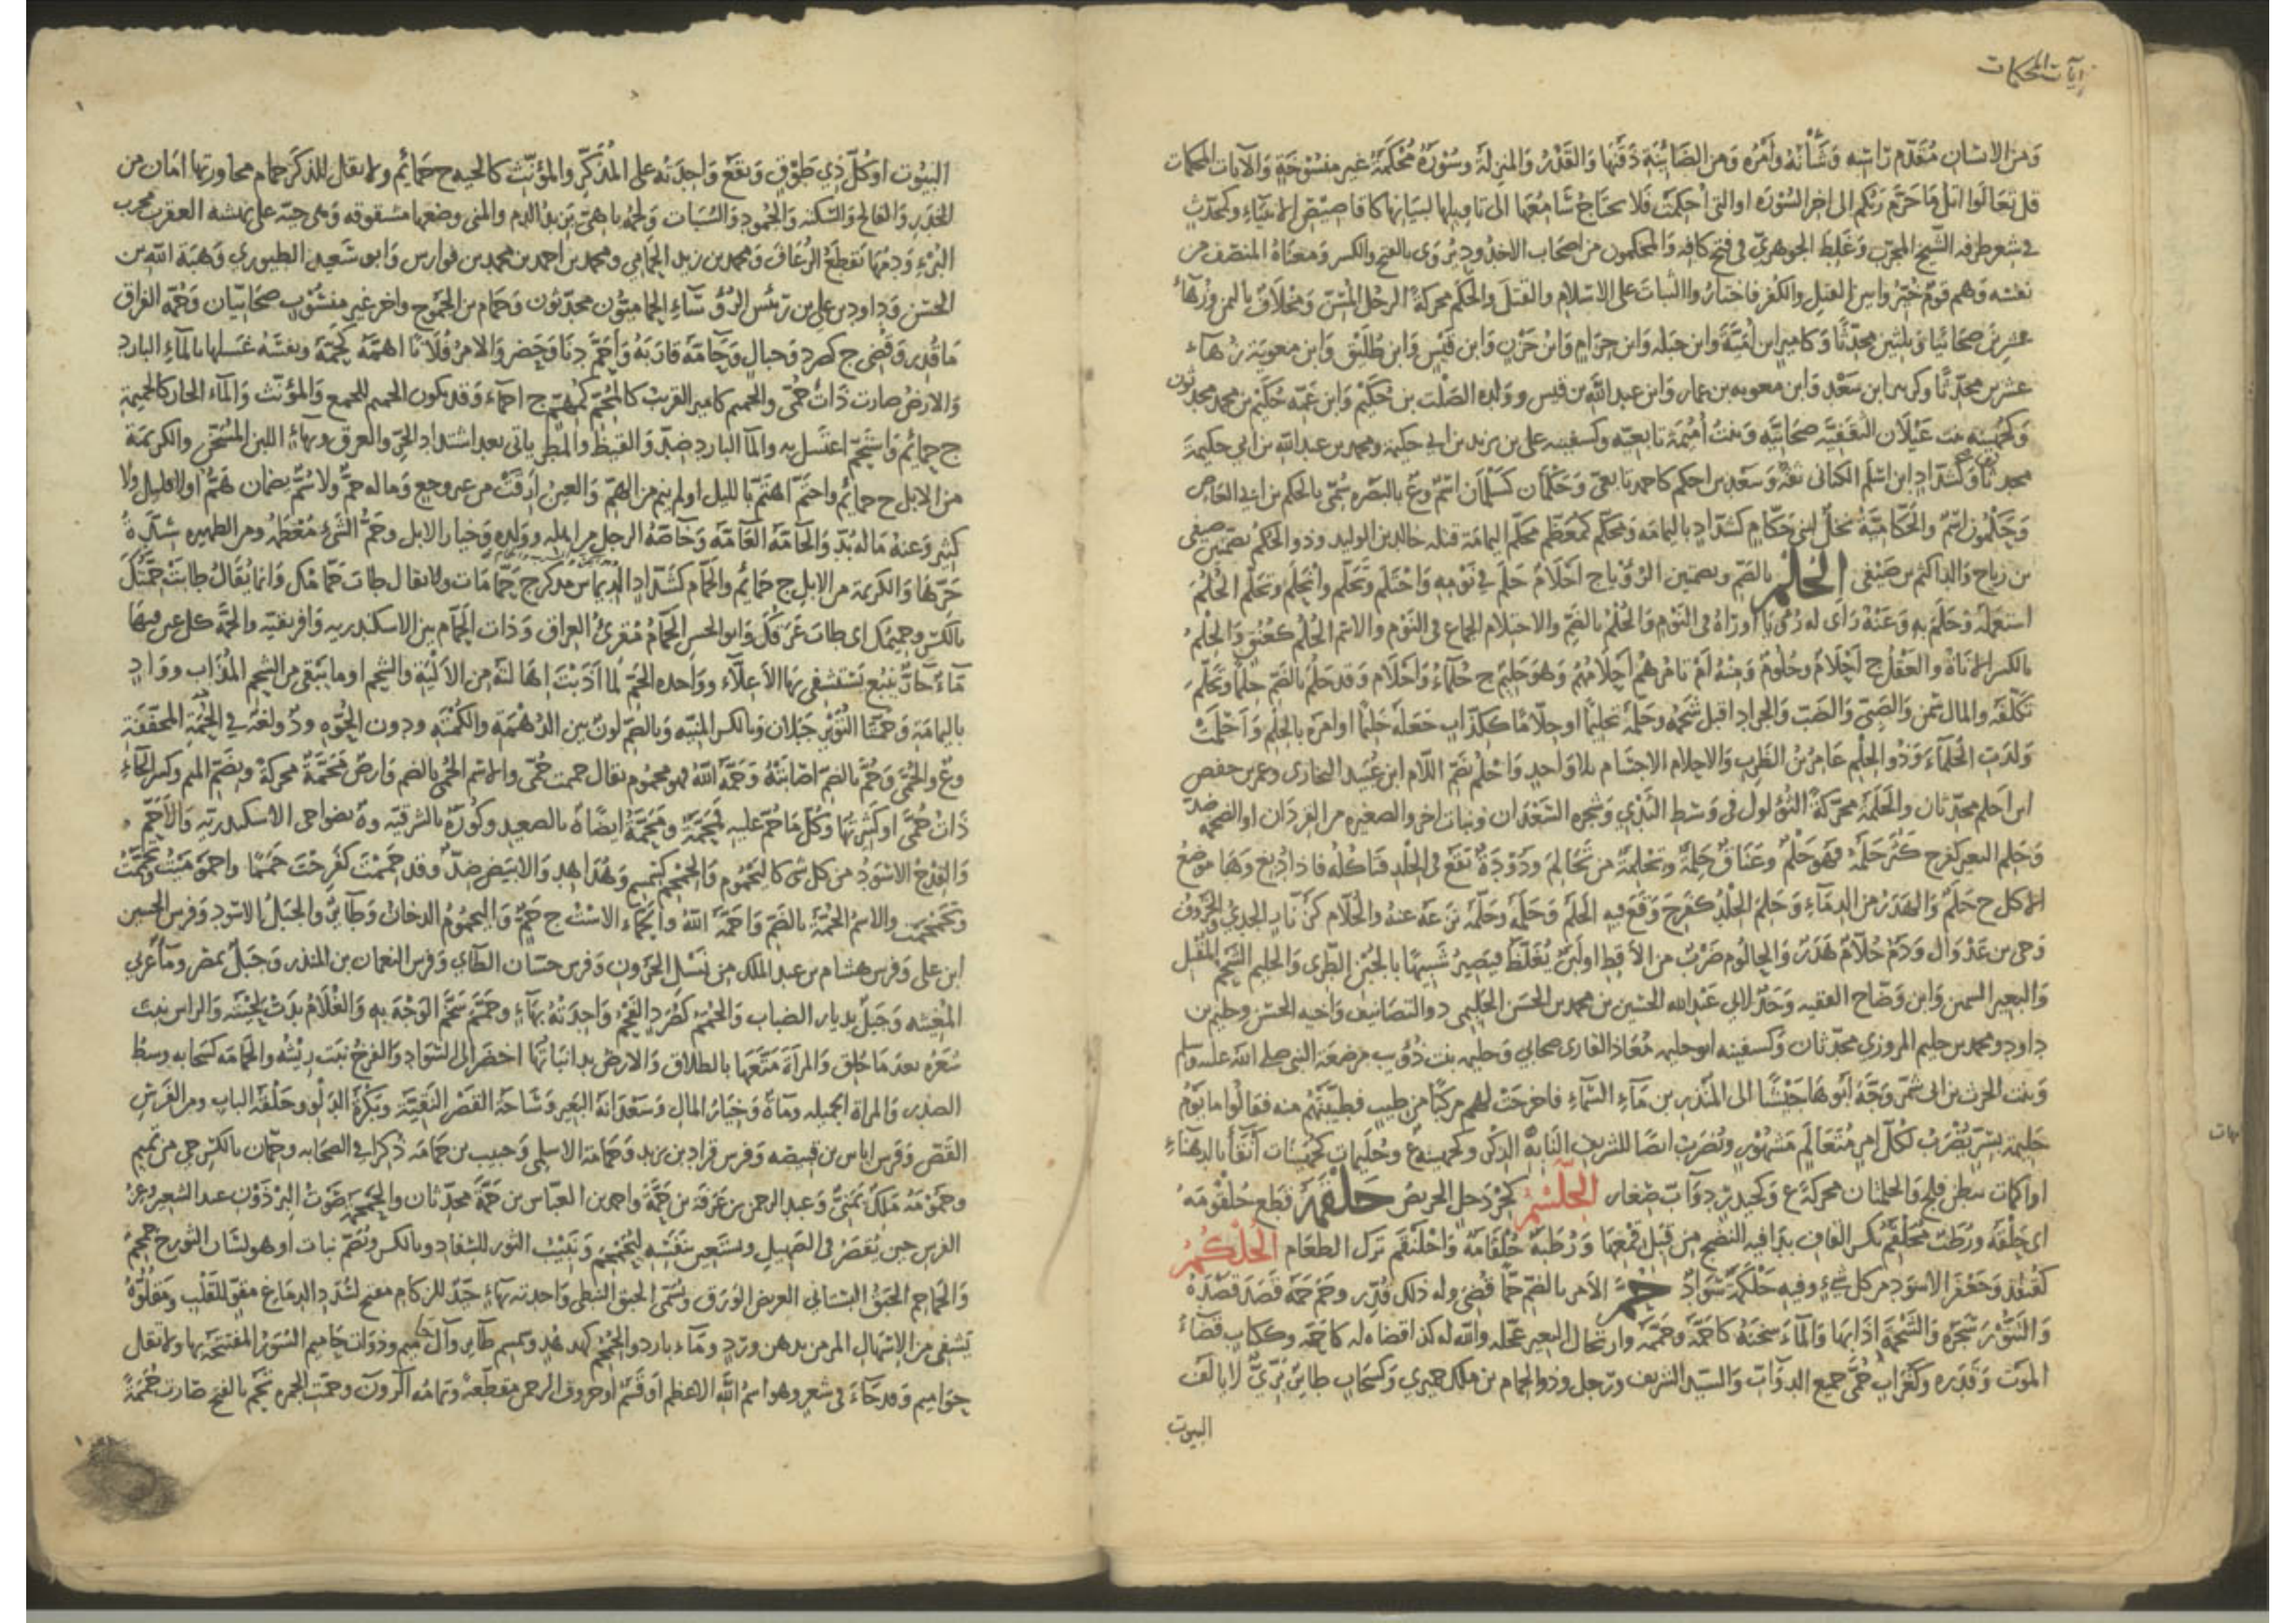 الآيات المحكمات
وَمن الانسان مُقَدّم رَاسِه وَشَأنُهُ وأَمْرُه وَمن الضَائِنَةِ ذَقَنُهَا وَالقَدْرُ وَالمنزلَة وسُوْرَةٌ مُحْكَمَةٌ غير منسُوْخَةٍ وَالآيَات المحكمات
قل تعَالَوا اتلُ مَا حَرّم رَبّكم الى اخر السُوْرَه او التى أُحكِمَتْ فَلا يحتَاجُ سَامِعُهَا الى تاويلها لبيَانها كاقاصِيْصِ الانبيَاءِ وكمحَدّث
فى شعر طرفه الشيخ المجرّب وَغَلِطَ الجوهريّ فى فتح كافه وَالمحكمون من اصحَاب الاخدُود يُرْوَى بالفتح والكسر وَمعنَاهُ المنصف من
نفسه وَهم قومٌ خُيّرُوا بين القتل والكفر فاختارُوا الثبَاتَ على الاسْلام والقتلَ والحَكَم محركةً الرجُل المُسِنّ وَمخلَافٌ باليمن وزُهَاءُ
عشرينَ صحَابيًا وثلثين محَدّثًا وَكامير ابن أُمَيَّةَ وابن جَبَلَه وابن حِزَام وَابْن حَزْنٍ وابن قَيْس وَابن طُلَيْق وَابن معَوية زُهَاء
عشرين محدّثًا وكزبير ابن سَعْد وَابن معويه بن عمار وَابن عبد الله بن قيس وولده الصَلْت بن حُكَيْم وَابن عَمّه حُكَيْم بن محمد محدثون
وَكجهَينه بنت غَيْلَان الثَقَفيّه صحَابيّه وَبنتُ أُمَيمَة تابعيّه وكسفينه على بن يزيد بن ابى حكيمه ومحمد بن عبد الله بن ابى حكيمَة
محدثَان وَكشدّادٍ ابن اسلم الكنانى ثقة وَسَعْد بن احكم كاحمد تابعى وَحَكْمَان كَسَلْمَان اسْمٌ وع بالبَصْره سُمّى بالحكم بن ابى العَاص
وَحَكَمُون اسْمٌ وَالحَكّاميّةُ نخلٌ لبنى حَكّامٍ كشَدّادٍ باليمامَه وَمحكّم كمُعَظّم محكّم اليمَامَة قتله خالد بن الوليد وذو الحَكم بضمّتين صيفى
بن رباح وَالد اكثم بن صَيْفى الحُلم بالضم وبضمتين الرُؤيا ج احْلَامٌ حَلَم فى نَوْمِه وَاحْتَلَم وَتَحَلّم وانحَلَم وتحَلّم الحُلم
استَعمَلهُ وَحَلَم به وَعَنهُ رَأى له رُؤيَا او رَآهُ فى النَوْم وَالحُلْمُ بالضمّ والاحتلام الجماع فى النَوْم والاسم الحُلُم كعُنُقٍ وَالحِلْمُ
بالكسر الانَاةُ والعَقْل ج أَحْلَامٌ وحُلومٌ وَمِنْهُ أَمْ تامرُهمْ أَحْلَامُهُم وَهوَ حَليم ج حُلَمَاء وَأَحْلَام وَقد حَلُم بالضمّ حِلْما وتحَلّم
تكلّفَه والمال سَمِن وَالصَبىّ وَالضَبّ وَالجراد اقبل شَحْمُه وحَلّمه تحليمًا او حِلّامًا كَكِذّاب جَعَلَهُ حَليْمًا او امرَه بالحِلْم وَأَحْلَمَتْ
وَلدتِ الحُلَماءَ وَذُو الحِلْم عَامرُ بْنُ الظَرِب وَالاحلام الاجسَام بلا وَاحدٍ وَاحلُمُ بضَمّ اللّام ابن عُبَيد البخارى وعمر بن حفص
ابن احلم محَدّثان والحَلَمَةُ محَرّكةً الثُؤلول فى وَسَط الثَدْي وَشجره السَعْدَان ونبَات اخر والصغيره من القردَان او الضخمه ضدّ
وَحلِم البعير كفَرح كَثُرَ حَلَمُه فَهوَ حَلِمٌ وعنَاقٌ حَلِمَةٌ وتحْلِمَةٌ من تَحَالِمَ وَدُوْدَةٌ تقَع فى الجلدِ فتَاكلُه فاذا دُبِغ وَهَا مَوْضعُ
الاكل ج حَلَمٌ وَالهَدَرُ من الدِمَاءِ وَحَلِمَ الجلْدُ كفَرِحَ وَقَعَ فيه الحَلَم وَحَلّمَهُ وحَلَمَه نَزعَهُ عنهُ والحُلّام كزُنّارٍ الجَدْيُ والخَرُوْفُ
وَحى من عَدْوَان وَدَمٌ حُلّامٌ هَدَرٌ وَالحَالُوم ضَرْبٌ من الأَقِطِ او لَبَنٌ يُغَلّظُ فيَصِيرُ شَبيهًا بالجُبْن الطَرِى وَالحَليم الشَحم المُقْبِل
وَالبعير السَمين وَابن وَضّاح الفقيه وَجَدٌّ لابى عَبْد الله الحُسَين بن محمد بن الحَسَن الحَليْمِى ذو التصَانيف وَاخيه الحسَن وحليم بن
دَاود ومحمد بن حليم المروزى محَدّثان وَكسفينه ابو حليمه مُعَاذ القارى صحَابي وَحليمه بنت ذُؤَيب مرضعَة النبى صلى الله عليه وسلم
وَبنت الحرث بن ابى شمر وَجّهَ أَبُوهَا جَيْشًا الى المُنْذر بن مَآء السَمَآءِ فاخرجَتْ لهم مِركنًا من طِيبٍ فطيّبَتْهم منه فقالوا ما يَوْمُ
حَليمة بسِرّ يُضْرَبُ لكُلّ أمرٍ مُتعَالَم مَشهُوْرٍ وَيُضْرَبُ ايضًا للشريف النَابِهِ الذِكْر وَكجهينه ع وحُلَيْمات كجهَينَات أَنْقَاءٌ بالدهنَاءِ
او اكمات ببطن فلج وَالحلمتان محركةً ع وَكحيدر دوآبّ صغار الحلّسْمُ كجِرْدَحل الحريصُ حَلْقَمَهُ قَطع حُلْقُومَه
اى حلْقَه ورُطَبٌ مُحَلْقِم بكسر القاف بدَا فيه النضج من قبل قمَعِهَا وَرُطبَة حُلْقَامَه وَاحْلَنْقَم ترك الطعَام الحُلْكُمُ
كقنفذ وَجَعْفَر الاسوَد من كل شَىءٍ وفيه حَلْكَمَةٌ سَوَادٌ حُمَّ الأَمر بالضَمّ حَمًّا قُضِىَ وله ذلك قُدّر وحَمّ حَمّه قَصَد قَصْدَهُ
وَالتَنُّوْرَ سَجَرَه والشَحْمَةَ اذَابَها وَالمَآءَ سخنَهُ كَاحَمّهُ وَحمَّمَه وارتحَال البعير عجّله والله له كذا قضاه له كاحمّه وككتَاب قضَاءُ
الموَت وَقَدَره وَكغُرَاب حُمّى جَميع الدوَآبّ وَالسَيّد الشريف ورَجل وذو الحمام بن ملك حميرى وَكسَحَاب طَائِرٌ بَرّىّ لا يالَف
البيوت
البُيُوت او كُلّ ذي طَوْقٍ وَتقَعُ وَاحدَتُه على المُذَكّر والمؤنّث كالحَيه ج حَمَائِم ولا يقال للذكَر حَمام مجاورتها امَان من
الخدر وَالفالج وَالسَكته وَالجُمود وَالسُبَات وَلحمُه باهىّ يزيدُ الدم والمنى وَضعها مشقوقه وَهى حيّه على نهشه العقرب مجرب
البُرءِ وَدمُهَا يَقطعُ الرُعَافَ وَمحمد بن زيد الحَمَامى ومحمد بن احمد بن محمد بن فوارس وَابو سَعيد الطيورى وَهبَة الله بن
الحسَن وَدَاود بن على بن رَئيس الرُؤسَآءِ الحمَاميّون محَدّثون وَحمَام بن الجَموح واخر غير منسُوْب صحَابيّان وَحُمّة الفراق
مَا قُدِر وَقُضِى ج كصُرَد وَجبال وَحَامّهُ قارَبَهُ وَأَحَمّ دنَا وَحَضر وَالامرُ فُلَانًا اهَمّهُ كحَمّهُ ونفسَهُ غَسَلها بالمَآء البَارد
وَالارضُ صارت ذاتَ حُمّى والحَميم كامير القريبُ كالمُحِمّ كمُهمّ ج احمّاءُ وَقد يكون الحميم للجمع وَالمؤنّث وَالمآء الحار كالحَميمَة
ج حمَائِم وَاستحمّ اعتسَل به وَالمآ البارد ضدّ وَالقَيظ وَالمَطر ياتى بعد اشتداد الحَرّ والعرق وبهاءٍ اللبن المُسَخّن والكريمَة
من الابل ج حمائِم واحتَمّ اهتَمّ بالليل او لم ينم من الهمّ وَالعين أَرِقَتْ من غير وجع وَمَا له حَمٌّ ولا سُمٌّ بضمان هَمٌّ او لا قليل ولا
كثير وَعنهُ مَاله بُدّ وَالحَامّهُ العَآمّه وَخآصّهُ الرجل من اهله وولده وَخيار الابل وَحَمّ الشَىءِ مُعظمُه ومن الظهيره شدّةُ
حَرّهَا وَالكريمَه من الابل ج حمَائِم والحَمّام كشَدّاد الدِيمَاس مُذكّر ج حَمّامَات ولا يقال طابَ حَمّامُك وَانّما يُقَالُ طَابَتْ حِمَّتُك
بالكسْر وحميمُك اى طابَ عَرَقُك وَابو الحسن الحَمّامُ مُقرئُ العراق وَذات الحَمّام بين الاسكندريه وَافريقيّه والحَمّة كل عين فيها
مَآءٌ حَارٌّ ينبعُ يَسْتَشْفى بهَا الأَعِلَّاء وواحده الحَمّ لمَا اذَبْتَ اِهَالتَهُ من الأَلْيَةِ والشحم او ما يَبْقى من الشحم المُذَاب ووَادٍ
باليمَامَة وَحمّتَا الثُوَيْر جَبَلَان وبالكسر المنيّه وَبالضمّ لونٌ بين الدُهْمَة والكُمْتَه ودون الحُوّه ود ولغةٌ فى الحُمَةِ المخففَة
وع والحُمّى وَحُمّ بالضمّ اصَابَتْهُ وَحَمّهُ اللهُ فهو محموم يقال حممت حُمّى والاسْم الحُمّى بالضم وَارضٌ مَحَمَّةٌ محركةٌ وبضمّ الميم وكسر الحَاءِ
ذَاتُ حُمّى او كَثِيرتها وَكُل مَا حُمّ عليه فَمَحَمَّةٌ وَمَحَمّةُ ايضًا ة بالصعيد وكُوْرَةٌ بالشرقيّه وة بضواحى الاسكندريّه وَالأَحَمّ
وَالقِدْحُ الاسْوَدُ من كل شى كاليَحْمُوم وَالحِمْحِم كسِمسِم وَهُدَاهِد وَالابيَض ضدّ وقد حَمِمْتَ كفَرِحْتَ حَمَمًا واحموَمَيْتَ وتحَمّمْتُ
وَتحَمْحَمت والاسْم الحُمّةُ بالضَمّ وَاحَمّه اللهُ والحَمّاء الاسْت ج حُمٌّ وَاليحمُومُ الدخَانُ وَطآئِرٌ والجبَلُ الاسْوَد وَفرس الحسين
ابن على وَفرس هشَام بن عبد الملك من نَسْل الحَرُون وَفرس حسّان الطآى وَفرس النعمان بن المنذر وَجبَلٌ بمصر ومآءٌ غربى
المُغِيثَه وَجَبَلٌ بديار الضباب وَالحُمَم كصُرَدٍ الفَحْم وَاحدَتهُ بهَاءٍ وحَمّمَ سَخّم الوَجْهَ به وَالغُلَامُ بدَتْ لحيَتُه وَالراس نبتَ
شَعرُه بعد مَا حُلِق وَالمرأَةَ مَتَّعَهَا بالطلَاق وَالارضُ بدا نبَاتُهَا اخضَر الى السَوَاد وَالفرخ نبت ريشُه والحَمَامَه كسَحَابه وسَطُ
الصَدْر وَالمراة الجميله وَمآءَةٌ وَخيَارُ المال وَسَعْدَانَةُ البَعِير وَسَاحَةُ القَصْر النَقِيَّةُ وَبَكْرَةُ الدَلْو وحَلْقَةُ البَاب ومن الفَرَس
القَصّ وَفَرس اياس بن قَبيصَه وَفرس قراد بن يزيد وَحمَامَة الاسلمى وَحَبيب بن حَمامَه ذُكرا فى الصحَابه وحِمّان بالكسْر حى من تميم
وحَمُوْمَهُ مَلكٌ يَمنىٌّ وَعبد الرحمن بن عَرَفَة بن حُمَّةَ واحمد بن العَبّاس بن حُمَّةَ محَدّثان والحَمْحَمَه صَوْتُ البِرْذَوْن عند الشعِير وعَرّ
الفَرس حين يُقَصّرُ فى الصَهيل ويستَعين بنَفَسِه كالتَحَمْحُم وَنَبيْبُ الثور للسِفَاد وبالكسر ويُضَمّ نبَات او هو لسَان الثور ج حِمْحِم
وَالحَمَاحم الحَبَقُ البُسْتَانى العريض الوَرَق ويُسَمّى الحبق النبطى وَاحدته بهَاءٍ جيّد للزكام مفتح لسُدد الدمَاغ مقوٍّ للقَلب وَمَقْلُوّهُ
يَشفِى من الاسْهَال المزمن بدهن وردٍ وَمآء بارد والحُمْحُم كهدهُدٍ وَسِمسم طآئر وآل حاميم وذوَات حَاميم السُوَرُ المفتتحَة بها ولا تقل
حَوَاميم وَقد جَآءَ فى شعر وهو اسم اللَّه الاعظم او قَسَمٌ او حروف الرحمن مقطعةً وتمامُه آلر ون وحَمّت الجمره تَحَمّ بالفتح صارت حُمَمَةً